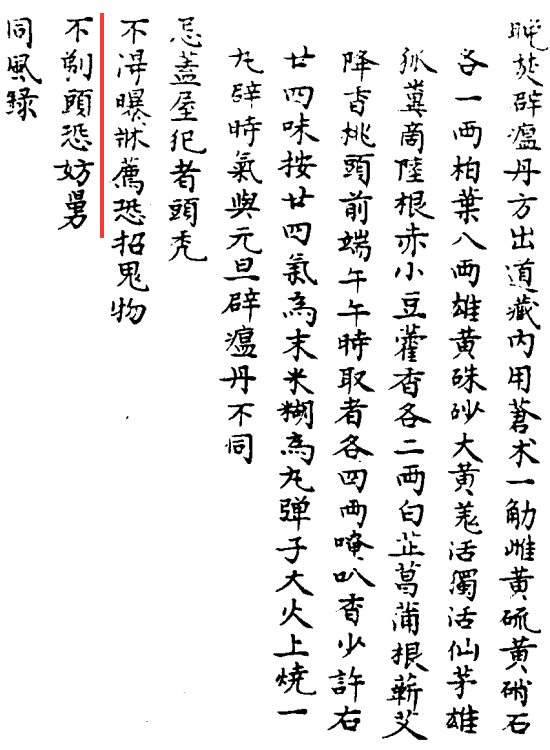 晚焚辟瘟丹方出道藏內用蒼术一觔雌黄硫黄硝石
各一两柏葉八两雄黄硃砂大黄羗活獨活仙茅雄
狐糞商陸根赤小豆藿香各二两白芷菖蒲根蘄艾
降香桃頭前端午午時取者各四两唵叭香少許右
廿四味按廿四氣為末米糊為丸弹子大火上燒一
丸辟時氣與元旦辟瘟丹不同
忌蓋屋犯者頭秃
不淂曝牀薦恐招鬼物
不剃頭恐妨舅
同風録